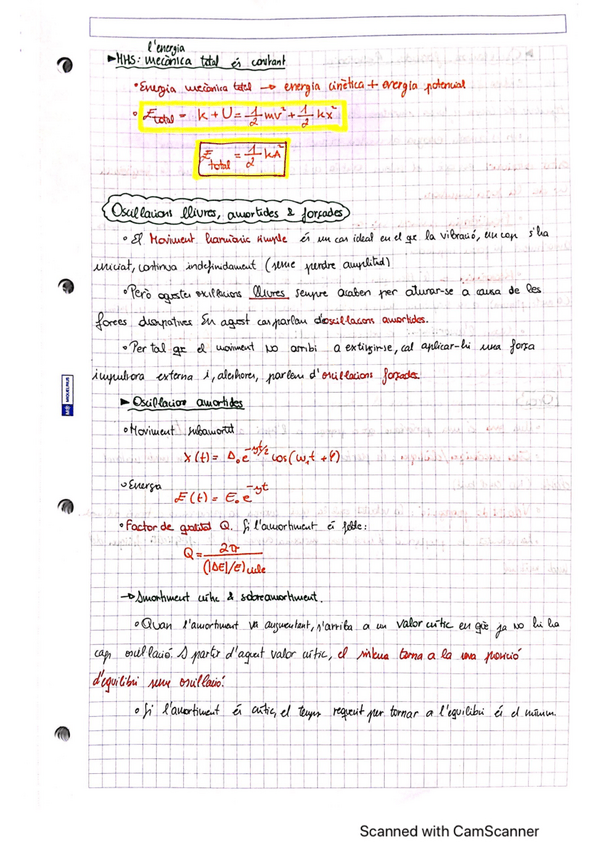 l'energia
►MHS: mecànica total és constant
• Energia mecànica total → energia cinètica + energia potencial
• E total = K + U = 1/2 mv² + 1/2 kx²
E total = 1/2 kA²
Oscil·lacions lliures, amortides & forçades
• El Moviment harmònic simple és un cas ideal en el qe la vibració, un cop s'ha
iniciat, continua indefinidament (sense perdre amplitud)
• Però aquestes oscil·lacions lliures sempre acaben per aturar-se a causa de les
forces dissipatives. En aquest cas parlam d'oscil·lacions amortides.
• Per tal qe el moviment no arribi a extingir-se, cal aplicar-hi una força
impulsora externa i, aleshores, parlem d'oscil·lacions forçades.
► Oscil·lacions amortides
• Moviment subamortit
x(t) = A₀e^(-γt/2) cos(ω₁t + φ)
• Energia
E(t) = E₀e^(-γt)
• Factor de qualitat Q. Si l'amortiment és feble:
Q = 2π / (|ΔE|/E)cicle
→ Amortiment crític & sobreamortiment.
• Quan l'amortiment va augmentant, s'arriba a un valor crític en què ja no hi ha
cap oscil·lació. A partir d'aquest valor crític, el sistema torna a la seva posició
d'equilibri sense oscil·lació.
• Si l'amortiment és crític, el temps requerit per tornar a l'equilibri és el mínim.
MIQUELRIUS
Scanned with CamScanner